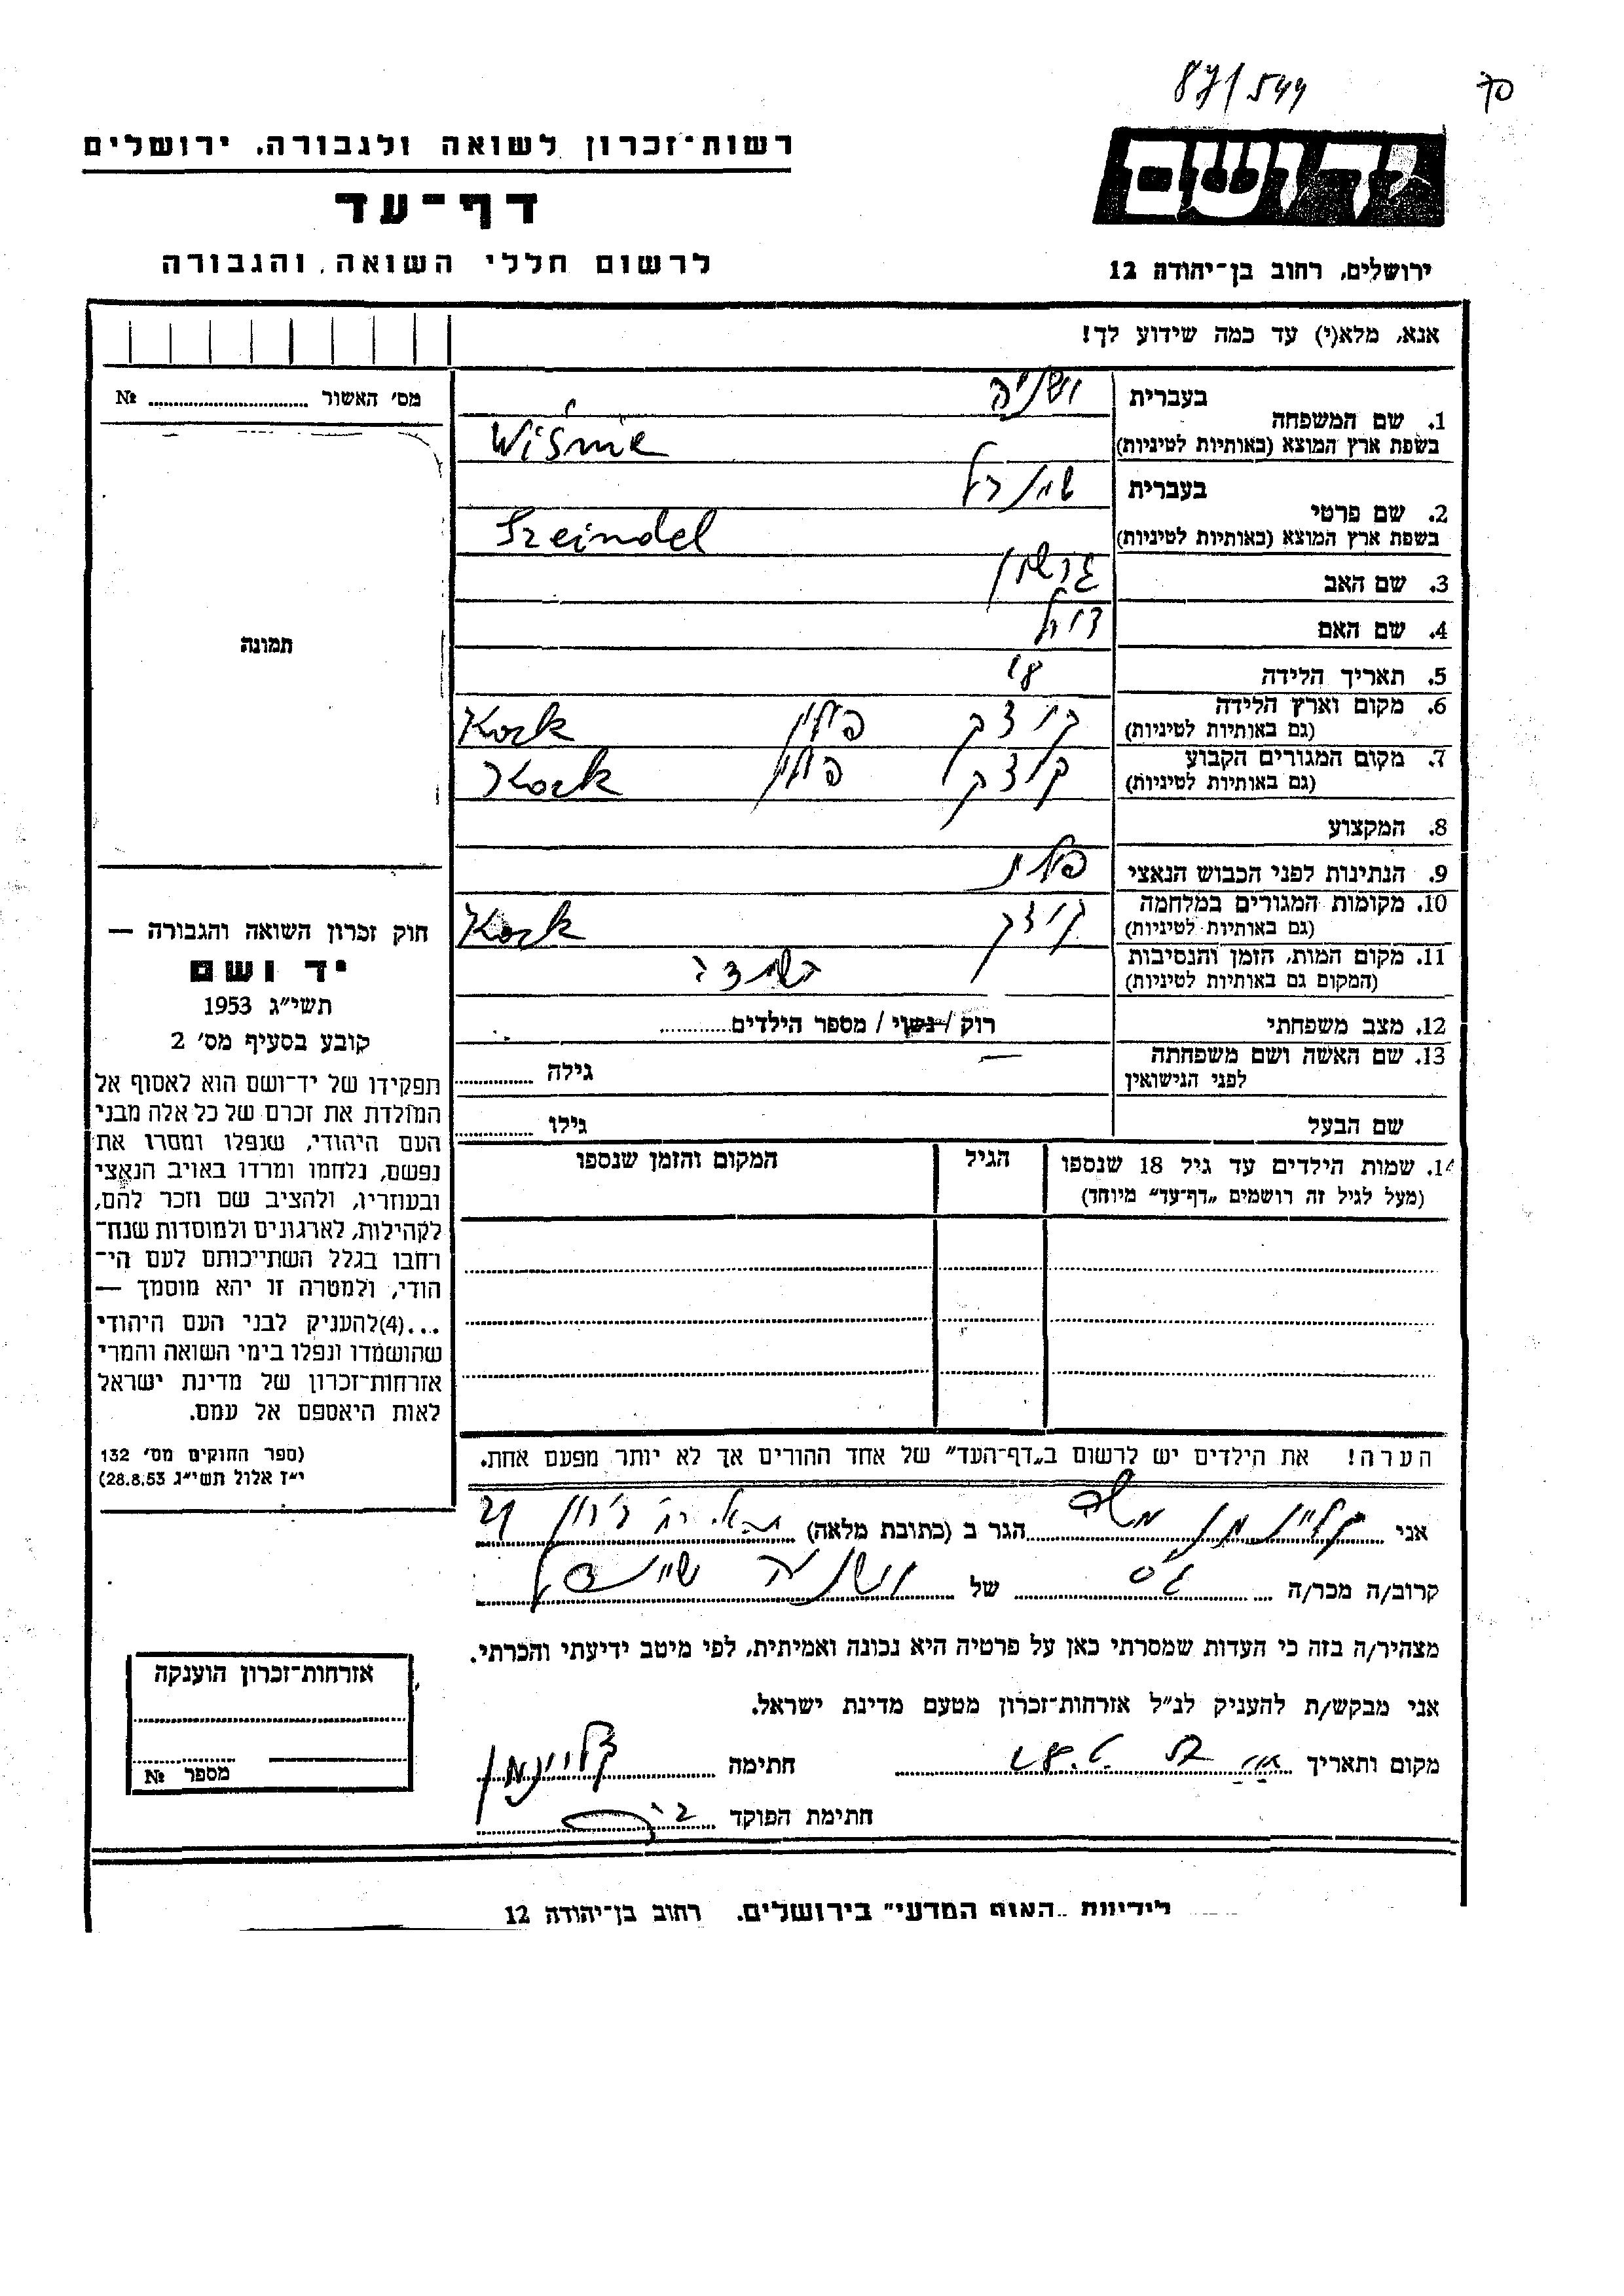 87/544
70
ידושם
ירושלים, רחוב בן־יהודה 12
רשות־זכרון לשואה ולגבורה, ירושלים
דף־עד
לרשום חללי השואה והגבורה
אנא, מלא(י) עד כמה שידוע לך!
1. שם המשפחה
בעברית ושניה
בשפת ארץ המוצא (באותיות לטיניות) Wiśnie
2. שם פרטי
בעברית שינדל
בשפת ארץ המוצא (באותיות לטיניות) Szeindel
3. שם האב גרשון
4. שם האם
5. תאריך הלידה 18
6. מקום וארץ הלידה קוצק פולין Kock
(גם באותיות לטיניות)
7. מקום המגורים הקבוע קוצק פולין Kock
(גם באותיות לטיניות)
8. המקצוע
9. הנתינות לפני הכבוש הנאצי פולנית
10. מקומות המגורים במלחמה קוצק Kock
(גם באותיות לטיניות)
11. מקום המות, הזמן והנסיבות
(המקום גם באותיות לטיניות)
12. מצב משפחתי רוק / נשוי / מספר הילדים
13. שם האשה ושם משפחתה — גילה
לפני הנישואין
שם הבעל גילו
14. שמות הילדים עד גיל 18 שנספו הגיל המקום והזמן שנספו
(מעל לגיל זה רושמים „דף־עד״ מיוחד)
הערה! את הילדים יש לרשום ב„דף־העד״ של אחד ההורים אך לא יותר מפעם אחת.
אני קליינמן משה הגר ב (כתובת מלאה)
קרוב/ה מכר/ה גיס של ושניה שיינדל
מצהיר/ה בזה כי העדות שמסרתי כאן על פרטיה היא נכונה ואמיתית, לפי מיטב ידיעתי והכרתי.
אני מבקש/ת להעניק לנ״ל אזרחות־זכרון מטעם מדינת ישראל.
מקום ותאריך חתימה קליינמן
חתימת הפוקד
מס׳ האשור №
תמונה
חוק זכרון השואה והגבורה —
יד ושם
תשי״ג 1953
קובע בסעיף מס׳ 2
תפקידו של יד־ושם הוא לאסוף אל
המולדת את זכרם של כל אלה מבני
העם היהודי, שנפלו ומסרו את
נפשם, נלחמו ומרדו באויב הנאצי
ובעוזריו, ולהציב שם וזכר להם,
לקהילות, לארגונים ולמוסדות שנח־
רחבו בגלל השתייכותם לעם הי־
הודי, ולמטרה זו יהא מוסמך —
...(4)להעניק לבני העם היהודי
שהושמדו ונפלו בימי השואה והמרי
אזרחות־זכרון של מדינת ישראל
לאות היאספם אל עמם.
(ספר החוקים מס׳ 132
י״ז אלול תשי״ג 28.8.53)
אזרחות־זכרון הוענקה
מספר №
בירושלים. רחוב בן־יהודה 12